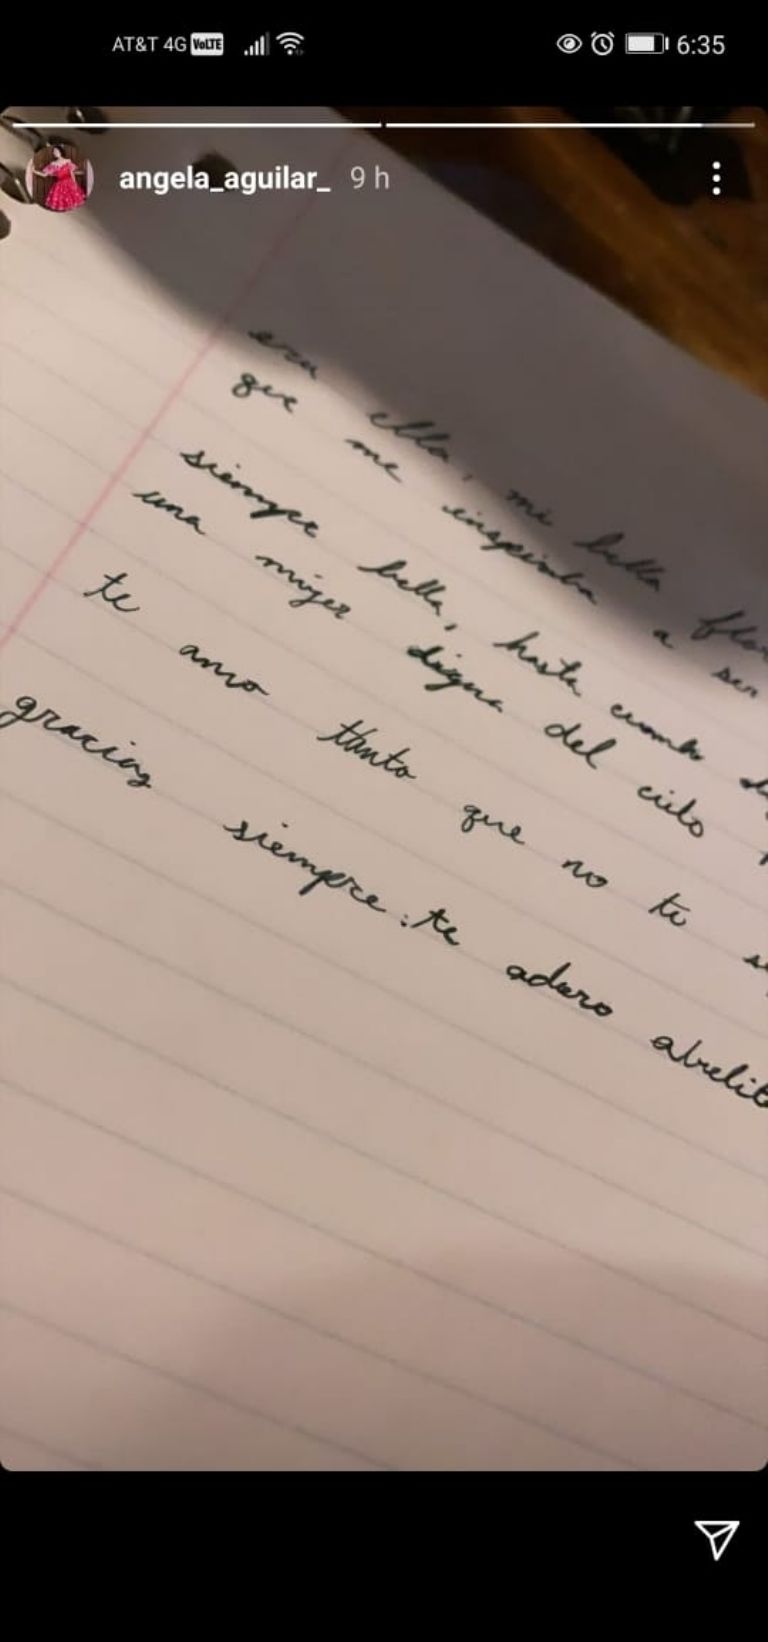 AT&T 4G VoLTE 6:35
angela_aguilar_ 9 h
era ella, mi bella flor
que me inspiraba a ser
siempre bella, hasta cuando
una mujer digna del cielo
te amo tanto que no te
gracias siempre. te adoro abuelit